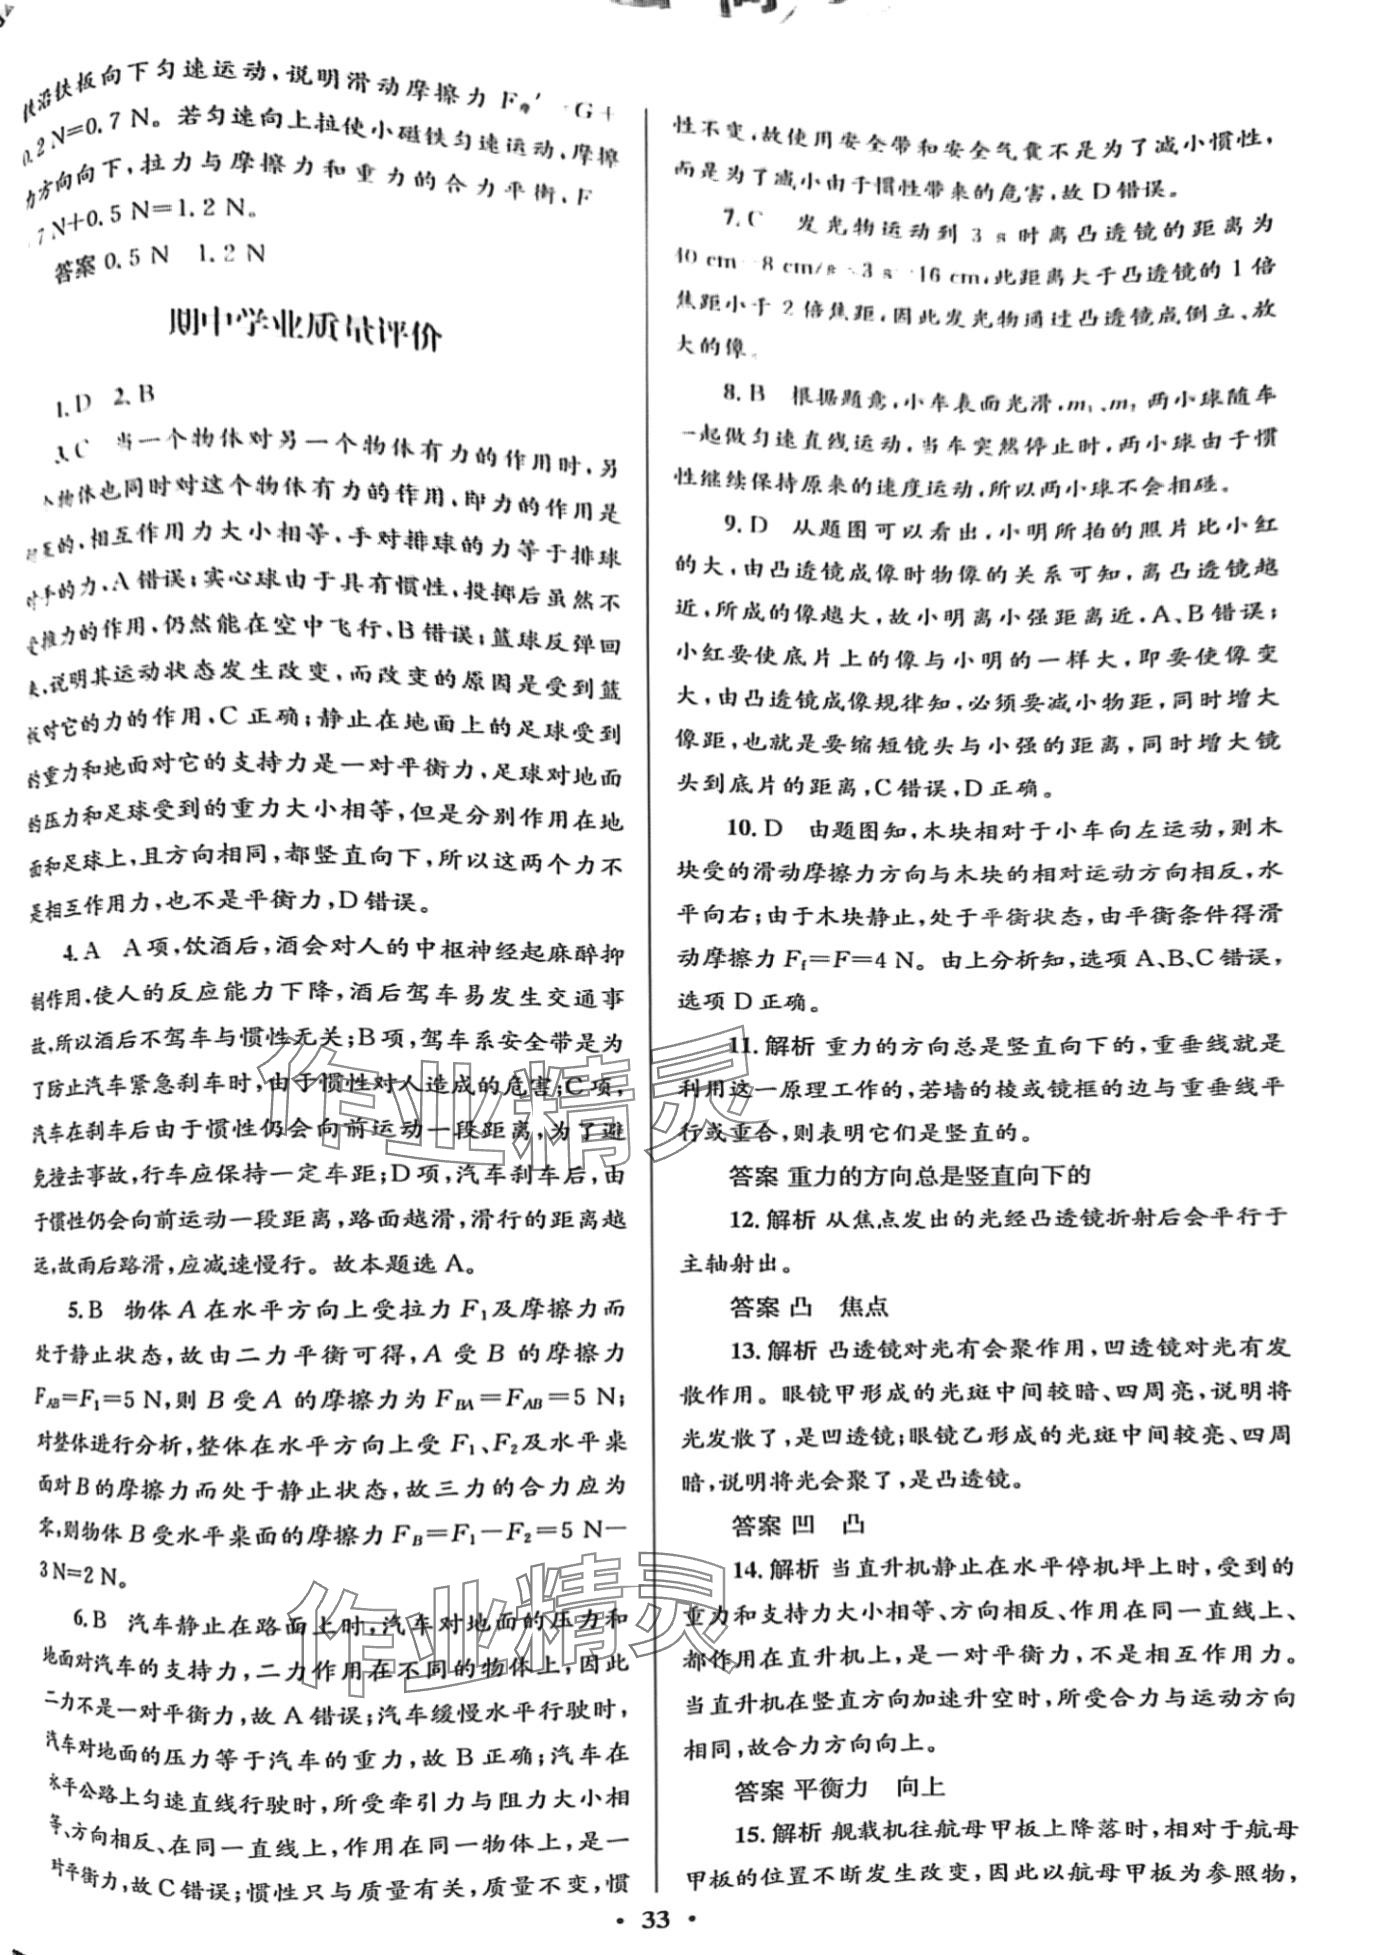 铁沿铁板向下匀速运动,说明滑动摩擦力 F G+
0.2 N=0.7 N。若匀速向上拉使小磁铁匀速运动,摩擦
力方向向下,拉力与摩擦力和重力的合力平衡,F
7 N+0.5 N=1.2 N。
答案 0.5 N 1.2 N
期中学业质量评价
1.D 2.B
3.C 当一个物体对另一个物体有力的作用时,另
物体也同时对这个物体有力的作用,即力的作用是
的,相互作用力大小相等,手对排球的力等于排球
对手的力,A错误;实心球由于具有惯性,投掷后虽然不
受推力的作用,仍然能在空中飞行,B错误;篮球反弹回
来,说明其运动状态发生改变,而改变的原因是受到篮
板对它的力的作用,C正确;静止在地面上的足球受到
的重力和地面对它的支持力是一对平衡力,足球对地面
的压力和足球受到的重力大小相等,但是分别作用在地
面和足球上,且方向相同,都竖直向下,所以这两个力不
是相互作用力,也不是平衡力,D错误。
4.A A项,饮酒后,酒会对人的中枢神经起麻醉抑
制作用,使人的反应能力下降,酒后驾车易发生交通事
故,所以酒后不驾车与惯性无关;B项,驾车系安全带是为
了防止汽车紧急刹车时,由于惯性对人造成的危害;C项,
汽车在刹车后由于惯性仍会向前运动一段距离,为了避
免撞击事故,行车应保持一定车距;D项,汽车刹车后,由
于惯性仍会向前运动一段距离,路面越滑,滑行的距离越
远,故雨后路滑,应减速慢行。故本题选A。
5.B 物体A在水平方向上受拉力F₁及摩擦力而
处于静止状态,故由二力平衡可得,A受B的摩擦力
F_AB=F₁=5 N,则B受A的摩擦力为F_BA=F_AB=5 N;
对整体进行分析,整体在水平方向上受F₁、F₂及水平桌
面对B的摩擦力而处于静止状态,故三力的合力应为
零,则物体B受水平桌面的摩擦力F_B=F₁-F₂=5 N-
3 N=2 N。
6.B 汽车静止在路面上时,汽车对地面的压力和
地面对汽车的支持力,二力作用在不同的物体上,因此
二力不是一对平衡力,故A错误;汽车缓慢水平行驶时,
汽车对地面的压力等于汽车的重力,故B正确;汽车在
水平公路上匀速直线行驶时,所受牵引力与阻力大小相
等、方向相反、在同一直线上,作用在同一物体上,是一
对平衡力,故C错误;惯性只与质量有关,质量不变,惯
性不变,故使用安全带和安全气囊不是为了减小惯性,
而是为了减小由于惯性带来的危害,故D错误。
7.C 发光物运动到3 s时离凸透镜的距离为
40 cm 8 cm/s 3 s 16 cm,此距离大于凸透镜的1倍
焦距小于2倍焦距,因此发光物通过凸透镜成倒立、放
大的像。
8.B 根据题意,小车表面光滑,m₁、m₂两小球随车
一起做匀速直线运动,当车突然停止时,两小球由于惯
性继续保持原来的速度运动,所以两小球不会相碰。
9.D 从题图可以看出,小明所拍的照片比小红
的大,由凸透镜成像时物像的关系可知,离凸透镜越
近,所成的像越大,故小明离小强距离近,A、B错误;
小红要使底片上的像与小明的一样大,即要使像变
大,由凸透镜成像规律知,必须要减小物距,同时增大
像距,也就是要缩短镜头与小强的距离,同时增大镜
头到底片的距离,C错误,D正确。
10.D 由题图知,木块相对于小车向左运动,则木
块受的滑动摩擦力方向与木块的相对运动方向相反,水
平向右;由于木块静止,处于平衡状态,由平衡条件得滑
动摩擦力F_f=F=4 N。由上分析知,选项A、B、C错误,
选项D正确。
11.解析 重力的方向总是竖直向下的,重垂线就是
利用这一原理工作的,若墙的棱或镜框的边与重垂线平
行或重合,则表明它们是竖直的。
答案 重力的方向总是竖直向下的
12.解析 从焦点发出的光经凸透镜折射后会平行于
主轴射出。
答案 凸 焦点
13.解析 凸透镜对光有会聚作用,凹透镜对光有发
散作用。眼镜甲形成的光斑中间较暗、四周亮,说明将
光发散了,是凹透镜;眼镜乙形成的光斑中间较亮、四周
暗,说明将光会聚了,是凸透镜。
答案 凹 凸
14.解析 当直升机静止在水平停机坪上时,受到的
重力和支持力大小相等、方向相反、作用在同一直线上、
都作用在直升机上,是一对平衡力,不是相互作用力。
当直升机在竖直方向加速升空时,所受合力与运动方向
相同,故合力方向向上。
答案 平衡力 向上
15.解析 舰载机往航母甲板上降落时,相对于航母
甲板的位置不断发生改变,因此以航母甲板为参照物,
作业精灵
作业精灵
· 33 ·